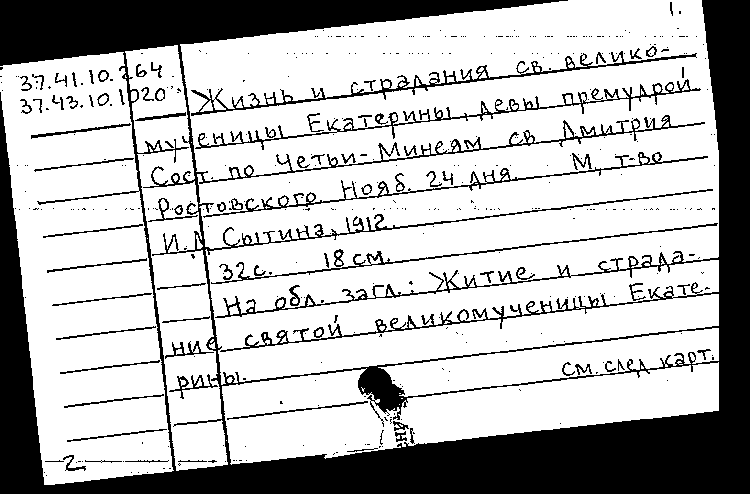 1.
37.41.10.264
37.43.10.1020
Жизнь и страдания св. велико-
мученицы Екатерины, девы премудрой
Сост. по Четьи-Минеям св Дмитрия
Ростовского. Нояб. 24 дня. М, т-во
И. Д Сытина, 1912.
32 с. 18 см.
На обл. загл.: Житие и страда-
ние святой великомученицы Екате-
рины.
см. след карт.
2